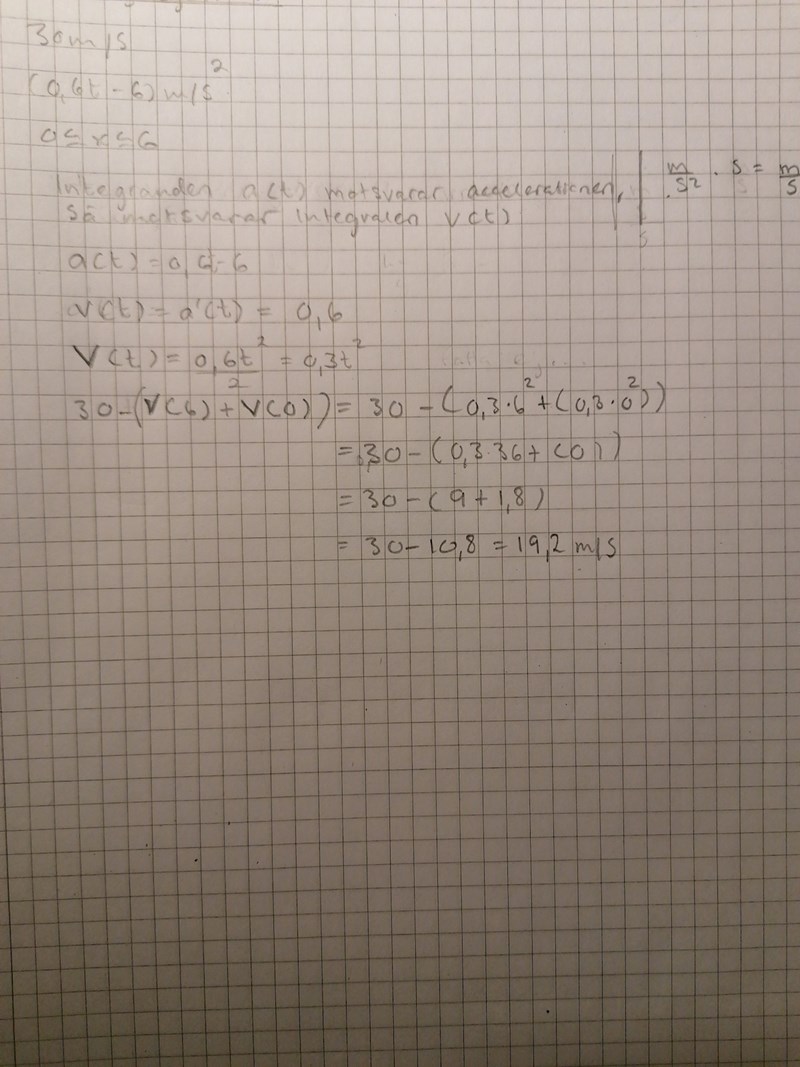 30m/s
(0,6t-6) m/s²
0≤x≤6
Integranden a(t) motsvarar accelerationen,
så motsvarar integralen V(t)
m/s² · s = m/s
v(t) = a'(t) = 0,6
V(t) = 0,6t²/2 = 0,3t²
30-(V(6)+V(0)) = 30-(0,3·6²+(0,3·0²))
= 30-(0,3·36+(0))
= 30-(9+1,8)
= 30-10,8 = 19,2 m/s